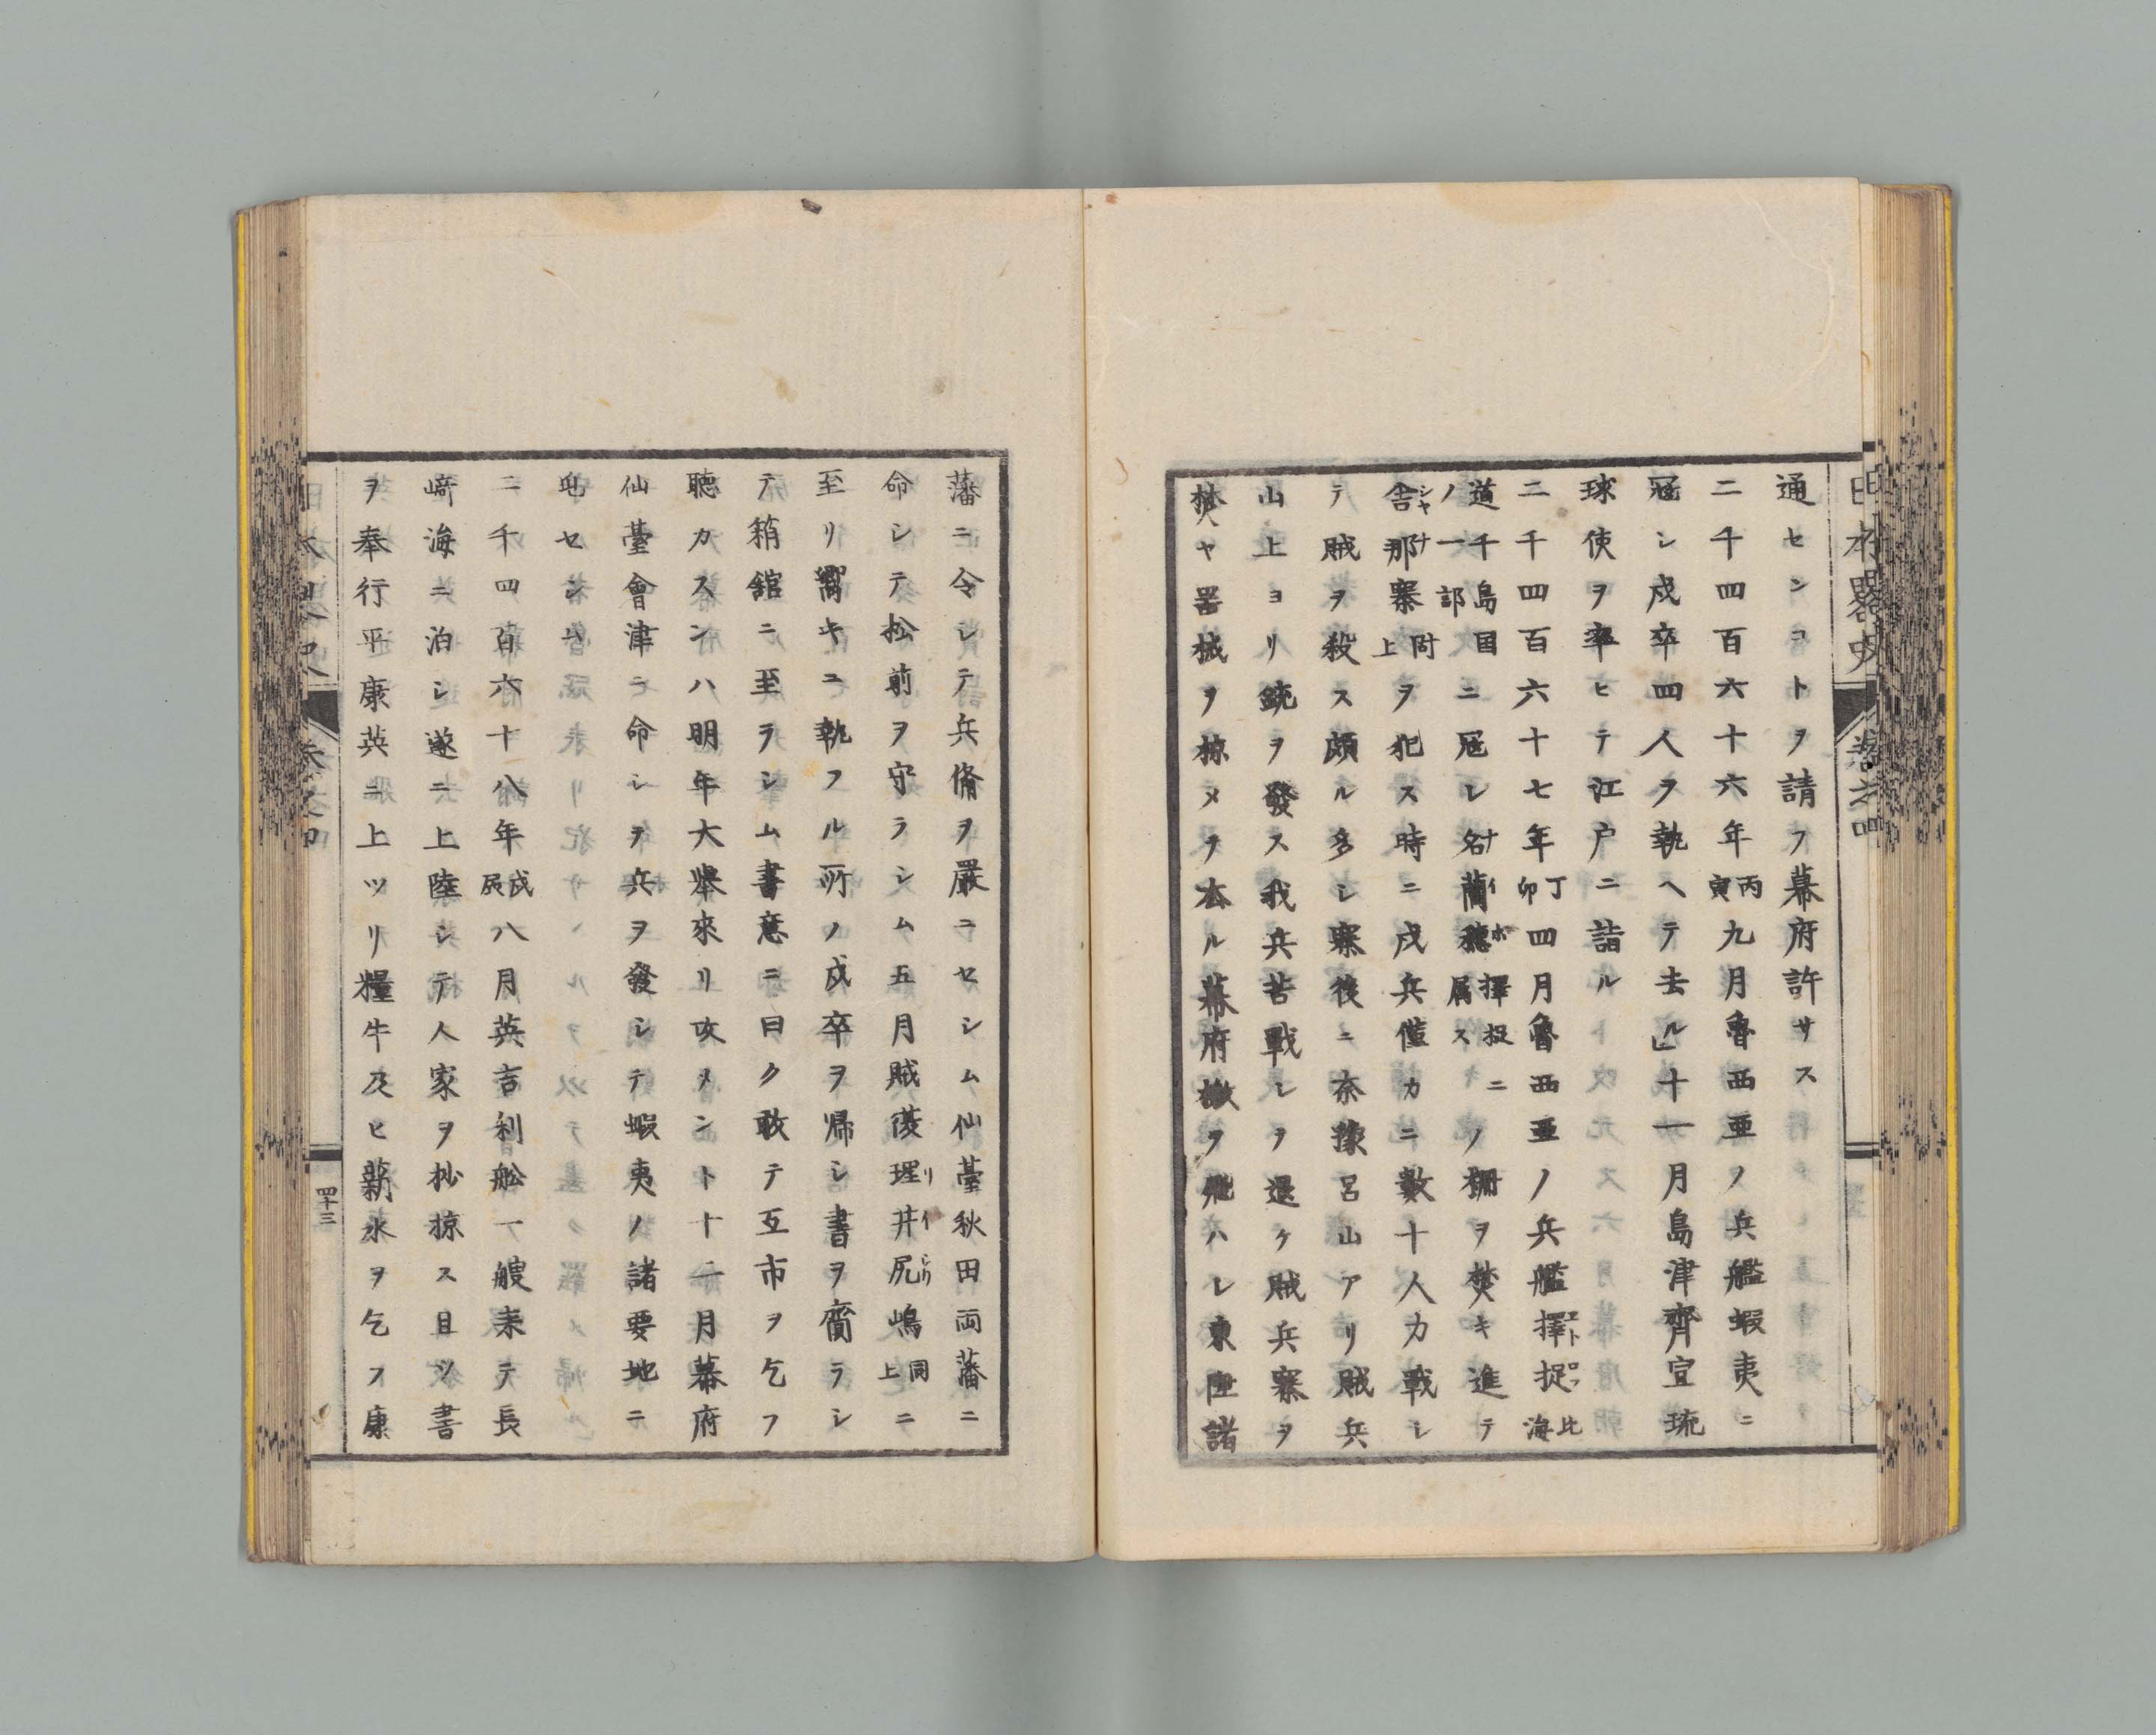 通センコトヲ請フ幕府許サス
二千四百六十六年丙寅九月魯西亜ノ兵艦蝦夷ニ
冦シ戍卒四人ヲ執ヘテ去ル」十一月島津齊宣琉
球使ヲ率ヒテ江戸ニ詣ル
二千四百六十七年丁卯四月魯西亜ノ兵艦擇捉エトロフ北海
道千島国ノ一部ニ冦シ名蘭穂ナイホ擇捉ニ属スノ柵ヲ焚キ進テ
舎那シヤナ寨同上ヲ犯ス時ニ戍兵僅カニ數十人力戰シ
テ賊ヲ殺ス頗ル多シ寨後ニ奈豫呂山アリ賊兵
山上ヨリ銃ヲ發ス我兵苦戰シヲ退ケ賊兵寨ヲ
焚ヤ器械ヲ掠メヲ去ル幕府檄ヲ飛ハレ東陲諸
藩ニ令シテ兵備ヲ嚴ニセシム仙臺秋田両藩ニ
命シテ松前ヲ守ラシム五月賊復理井尻リイシリ嶋同上ニ
至リ嚮キニ執フル所ノ戍卒ヲ帰シ書ヲ齎ラシ
テ箱舘ニ至ヲシム書意ニ曰ク敢テ互市ヲ乞フ
聴カスンハ明年大擧來リ攻メント十二月幕府
仙臺會津ニ命シヲ兵ヲ發シテ蝦夷ノ諸要地ニ
屯セシム
二千四百六十八年戊辰八月英吉利舩一艘来テ長
﨑海ニ泊シ遂ニ上陸シテ人家ヲ抄掠ス且シ書
ヲ奉行平康英ニ上ツリ糧牛及ヒ薪水ヲ乞フ康
四十三